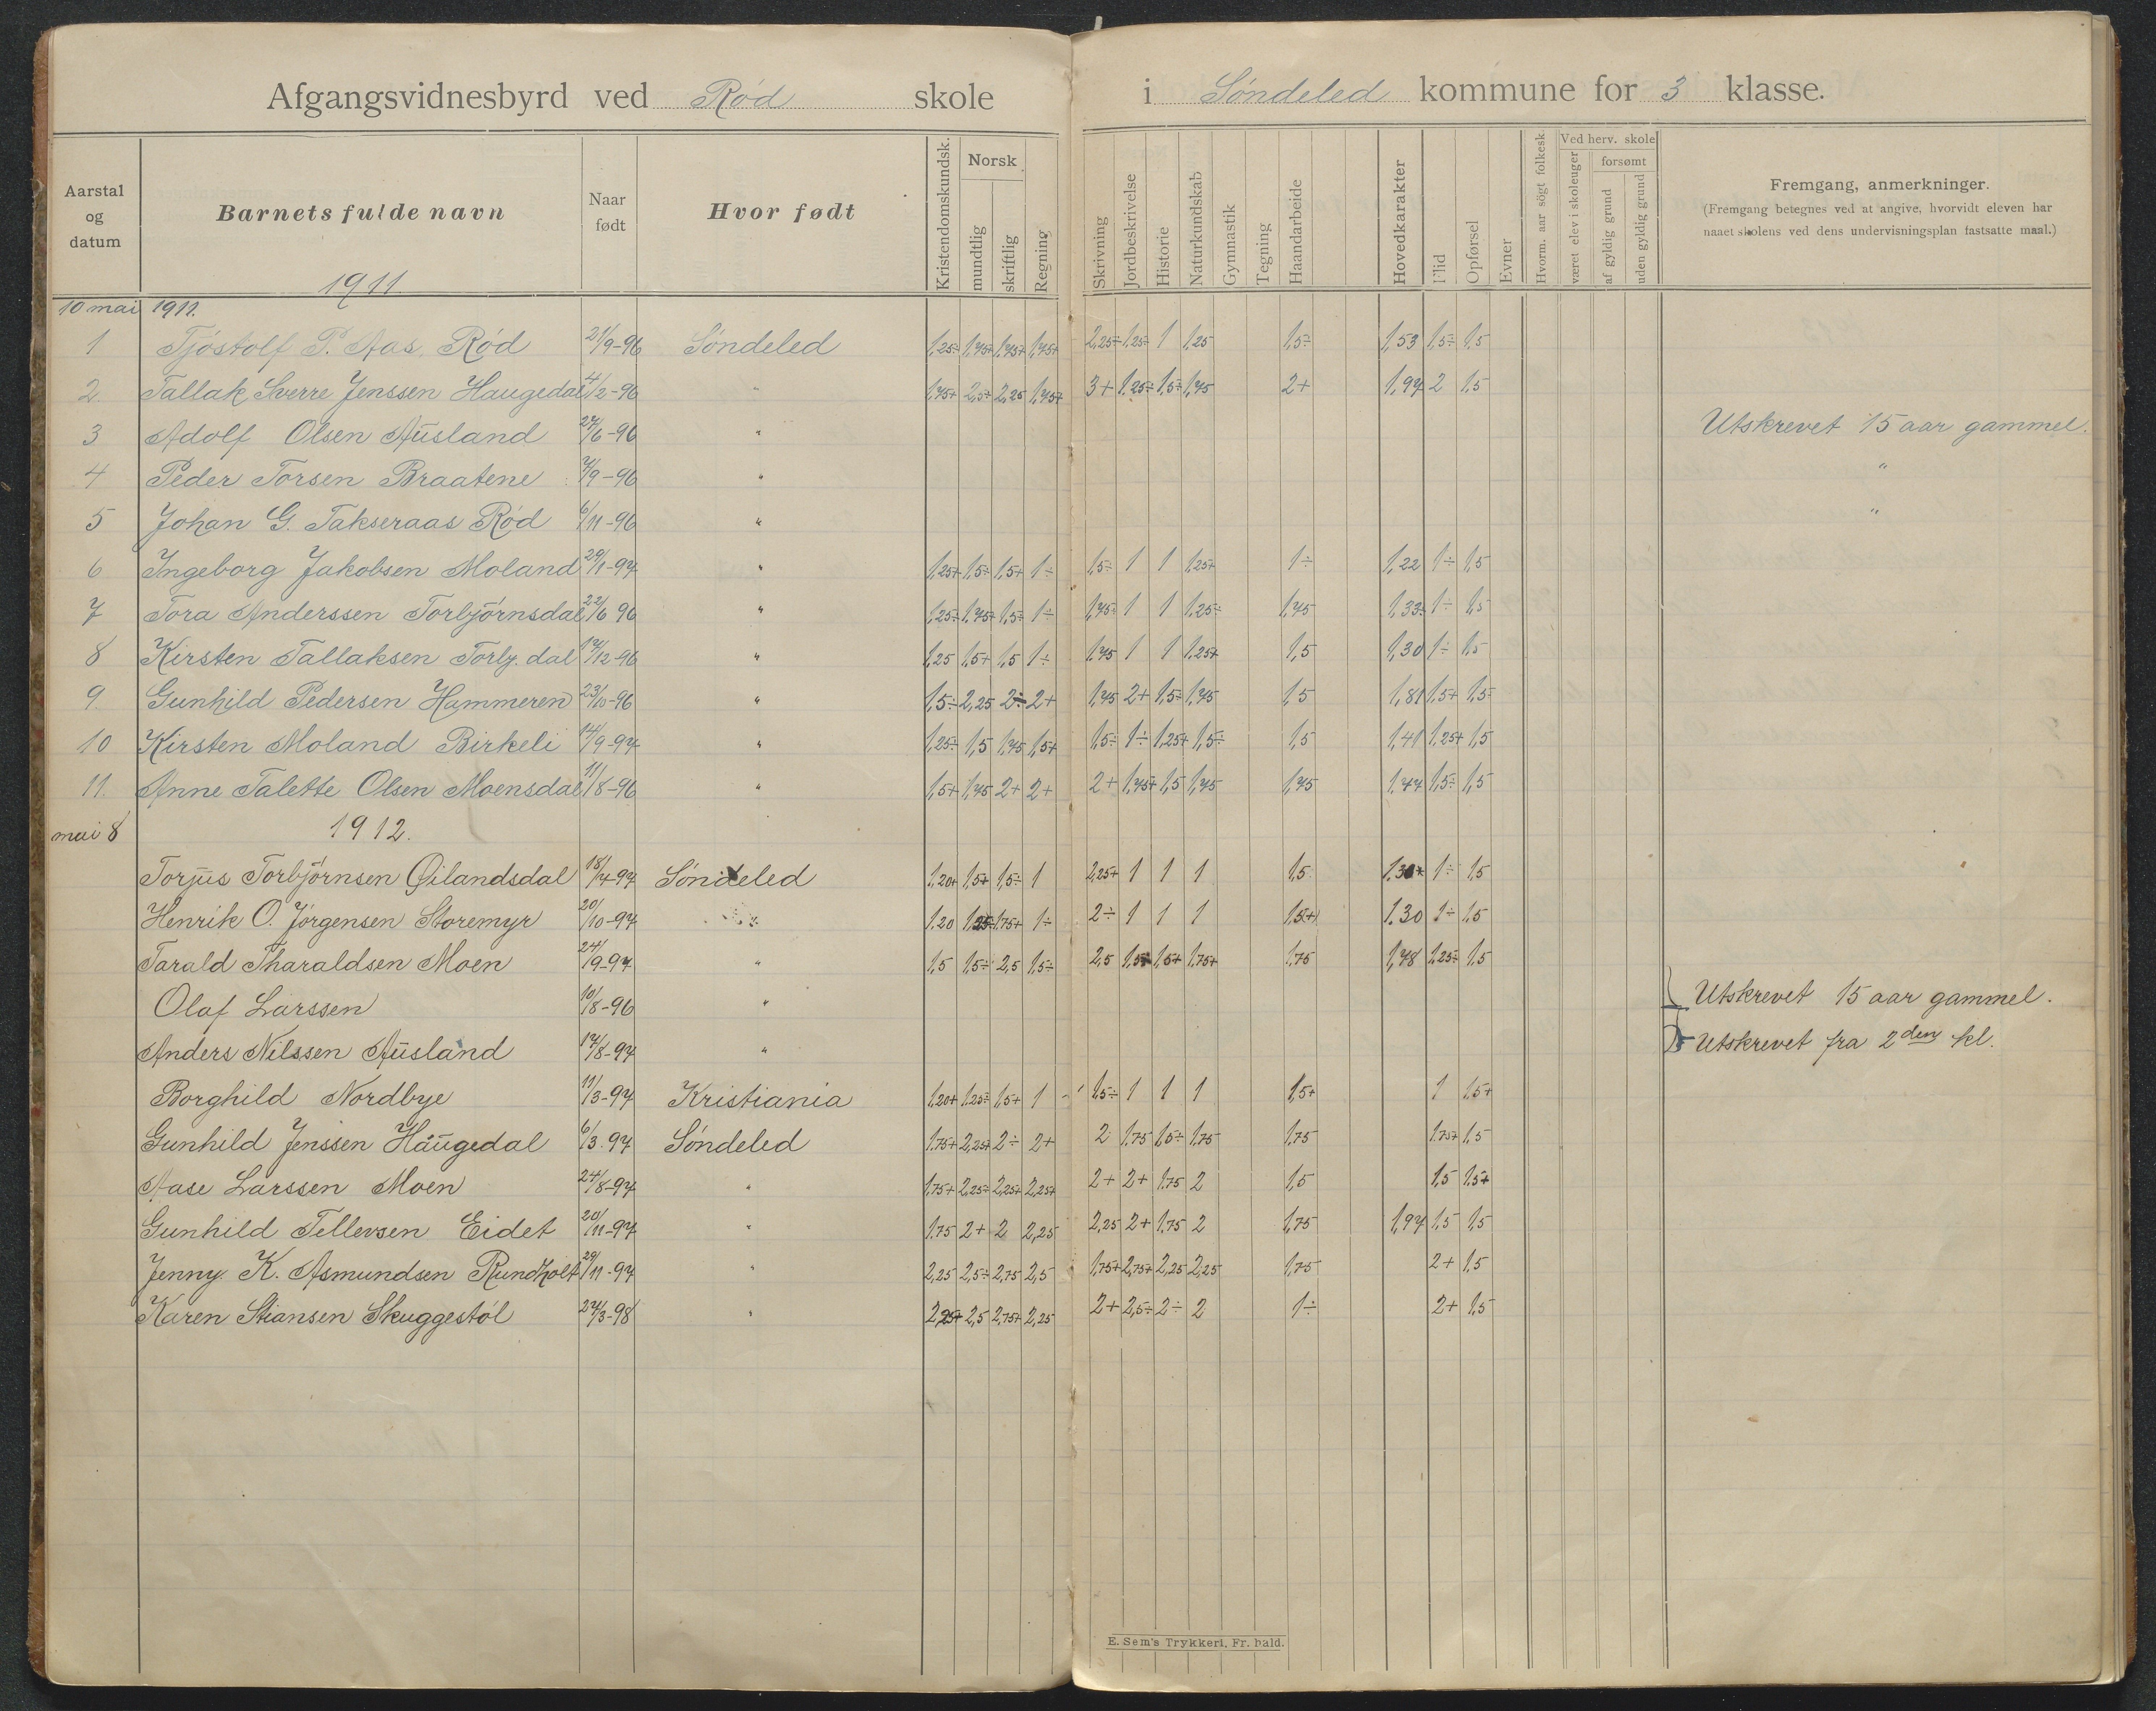 Afgangsvidnesbyrd ved Rød skole i Søndeled kommune for 3 klasse.
Aarstal og datum | Barnets fulde navn | Naar født | Hvor født | Kristendomskundsk. | Norsk mundtlig | skriftlig | Regning | Skrivning | Jordbeskrivelse | Historie | Naturkundskab | Gymnastik | Tegning | Haandarbeide | Hovedkarakter | Flid | Opførsel | Evner | Hvorm. aar søgt folkesk | Ved herv. skole | været elev i skoleuger | forsømt | af gyldig grund | uden gyldig grund | Fremgang, anmerkninger.
(Fremgang betegnes ved at angive, hvorvidt eleven har
naaet skolens ved dens undervisningsplan fastsatte maal.)
1911
10 mai 1911.
1 Tjøstolf P. Aas, Rød 21/9-96 Søndeled 1,25÷ 1,75+ 1,75+ 1,75+ 2,25÷ 1,25÷ 1 1,25 1,5÷ 1,53 1,5÷ 1,5
2. Tallak Sverre Jenssen Haugedal 4/2-96 " 1,75+ 2,5÷ 2,25 1,75+ 3+ 1,25÷ 1,5÷ 1,75 2+ 1,97 2 1,5
3 Adolf Olsen Ausland 27/6-96 " Utskrevet 15 aar gammel.
4 Peder Torsen Braatene 7/9-96 " "
5 Johan G. Takseraas Rød 6/11-96 " "
6 Ingeborg Jakobsen Moland 29/1-97 " 1,25+ 1,5÷ 1,5+ 1÷ 1,5÷ 1 1 1,25+ 1÷ 1,22 1÷ 1,5
7 Tora Anderssen Torbjørnsdal 22/6 96 " 1,25÷ 1,75+ 1,5÷ 1÷ 1,75÷ 1 1 1,25÷ 1,75 1,33 1÷ 1,5
8 Kirsten Tallaksen Torbj. dal 17/12-96 " 1,25 1,5+ 1,5 1÷ 1,75 1 1 1,25+ 1,5 1,30 1÷ 1,5
9. Gunhild Pedersen Hammeren 23/10-96 " 1,5÷ 2,25 2÷ 2+ 1,75 2+ 1,5÷ 1,75 1,5 1,81 1,5+ 1,5
10 Kirsten Moland Birkeli 14/9-97 " 1,25÷ 1,5 1,75 1,5+ 1,5÷ 1÷ 1,25+ 1,5÷ 1,5 1,41 1,25+ 1,5
11. Anne Talette Olsen Moensdal 11/8-96 " 1,5+ 1,75 2+ 2+ 2+ 1,75+ 1,5 1,75 1,75 1,77 1,5÷ 1,5
mai 8 1912.
Torjus Torbjørnsen Øilandsdal 18/4-97 Søndeled 1,20+ 1,5+ 1,5÷ 1 2,25+ 1 1 1 1,5 1÷ 1,5
Henrik O. Jørgensen Storemyr 20/10-97 " 1.20 1,25÷ 1,75+ 1÷ 2÷ 1 1 1 1,5+ 1.30 1÷ 1,5
Tarald Tharaldsen Moen 24/9-97 " 1,5 1,5÷ 2,5 1,5÷ 2,5 1,5+ 1,5+ 1,75+ 1,75 1,78 1,25÷ 1,5
Olaf Larssen 10/8-96 " Utskrevet 15 aar gammel.
Anders Nilssen Ausland 17/8-97 " Utskrevet fra 2den kl.
Borghild Nordbye 11/3-97 Kristiania 1,20+ 1,25÷ 1,5+ 1 1,5÷ 1 1 1 1,5+ 1 1,5+
Gunhild Jenssen Haugedal 6/3.97 Søndeled 1,75+ 2,25+ 2÷ 2+ 2 1,75 1,5÷ 1,75 1,75 1,75+ 1,5
Aase Larssen Moen 24/8-97 " 1,75+ 2,25÷ 2,25+ 2,25+ 2+ 2+ 1,75 2 1,5 1,5 1,5+
Gunhild Tellevsen Eidet 20/11-97 " 1.75 2+ 2 2,25 2,25 2+ 1,75 2 1,75 1,97 1,5 1,5
Jenny. K. Asmundsen Rundholt 29/11-97 " 2,25 2,5÷ 2,75 2,5 1,75+ 2,75+ 2,25 2,25 1,75 2+ 1,5
Karen Stiansen Skuggestøl 27/3-98 " 2,25+ 2,5 2,75+ 2,25 2+ 2,5÷ 2÷ 2 1÷ 2+ 1,5
E. Sem's Trykkeri, Fr. hald.